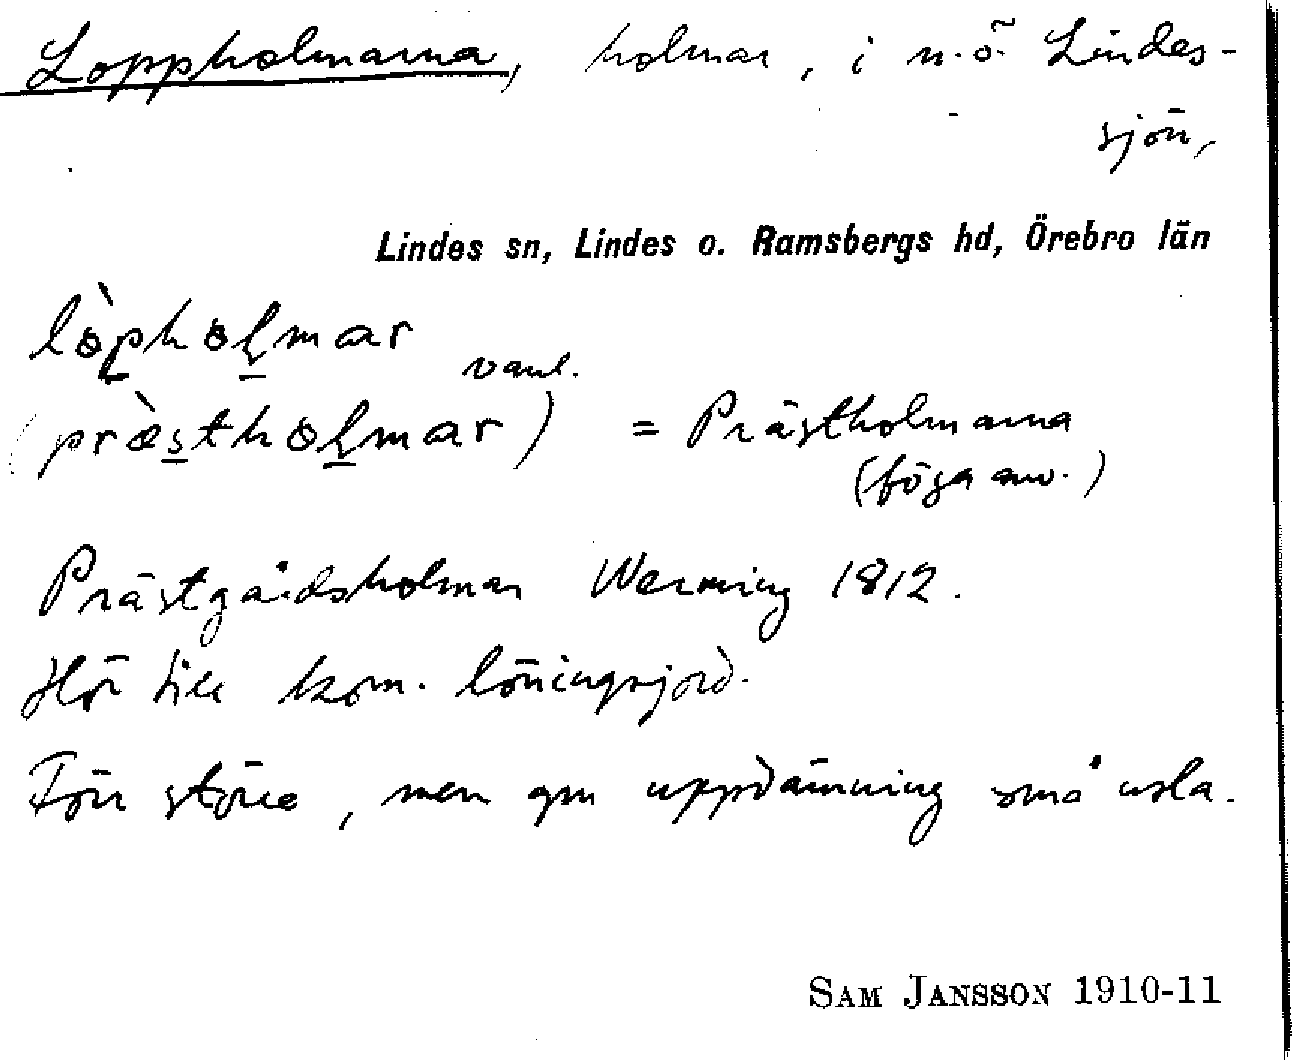 Loppholmarna, holmar, i n.ö. Lindes-
sjön,
Lindes sn, Lindes o. Ramsbergs hd, Örebro län
lòpholmar
vanl.
(præ̀stholmar) = Prästholmarna
(föga anv.)
Prästgårdsholmar Werming 1812.
Hör till kom. löningsjord.
Förr större, men gm uppdämning små usla.
SAM JANSSON 1910-11